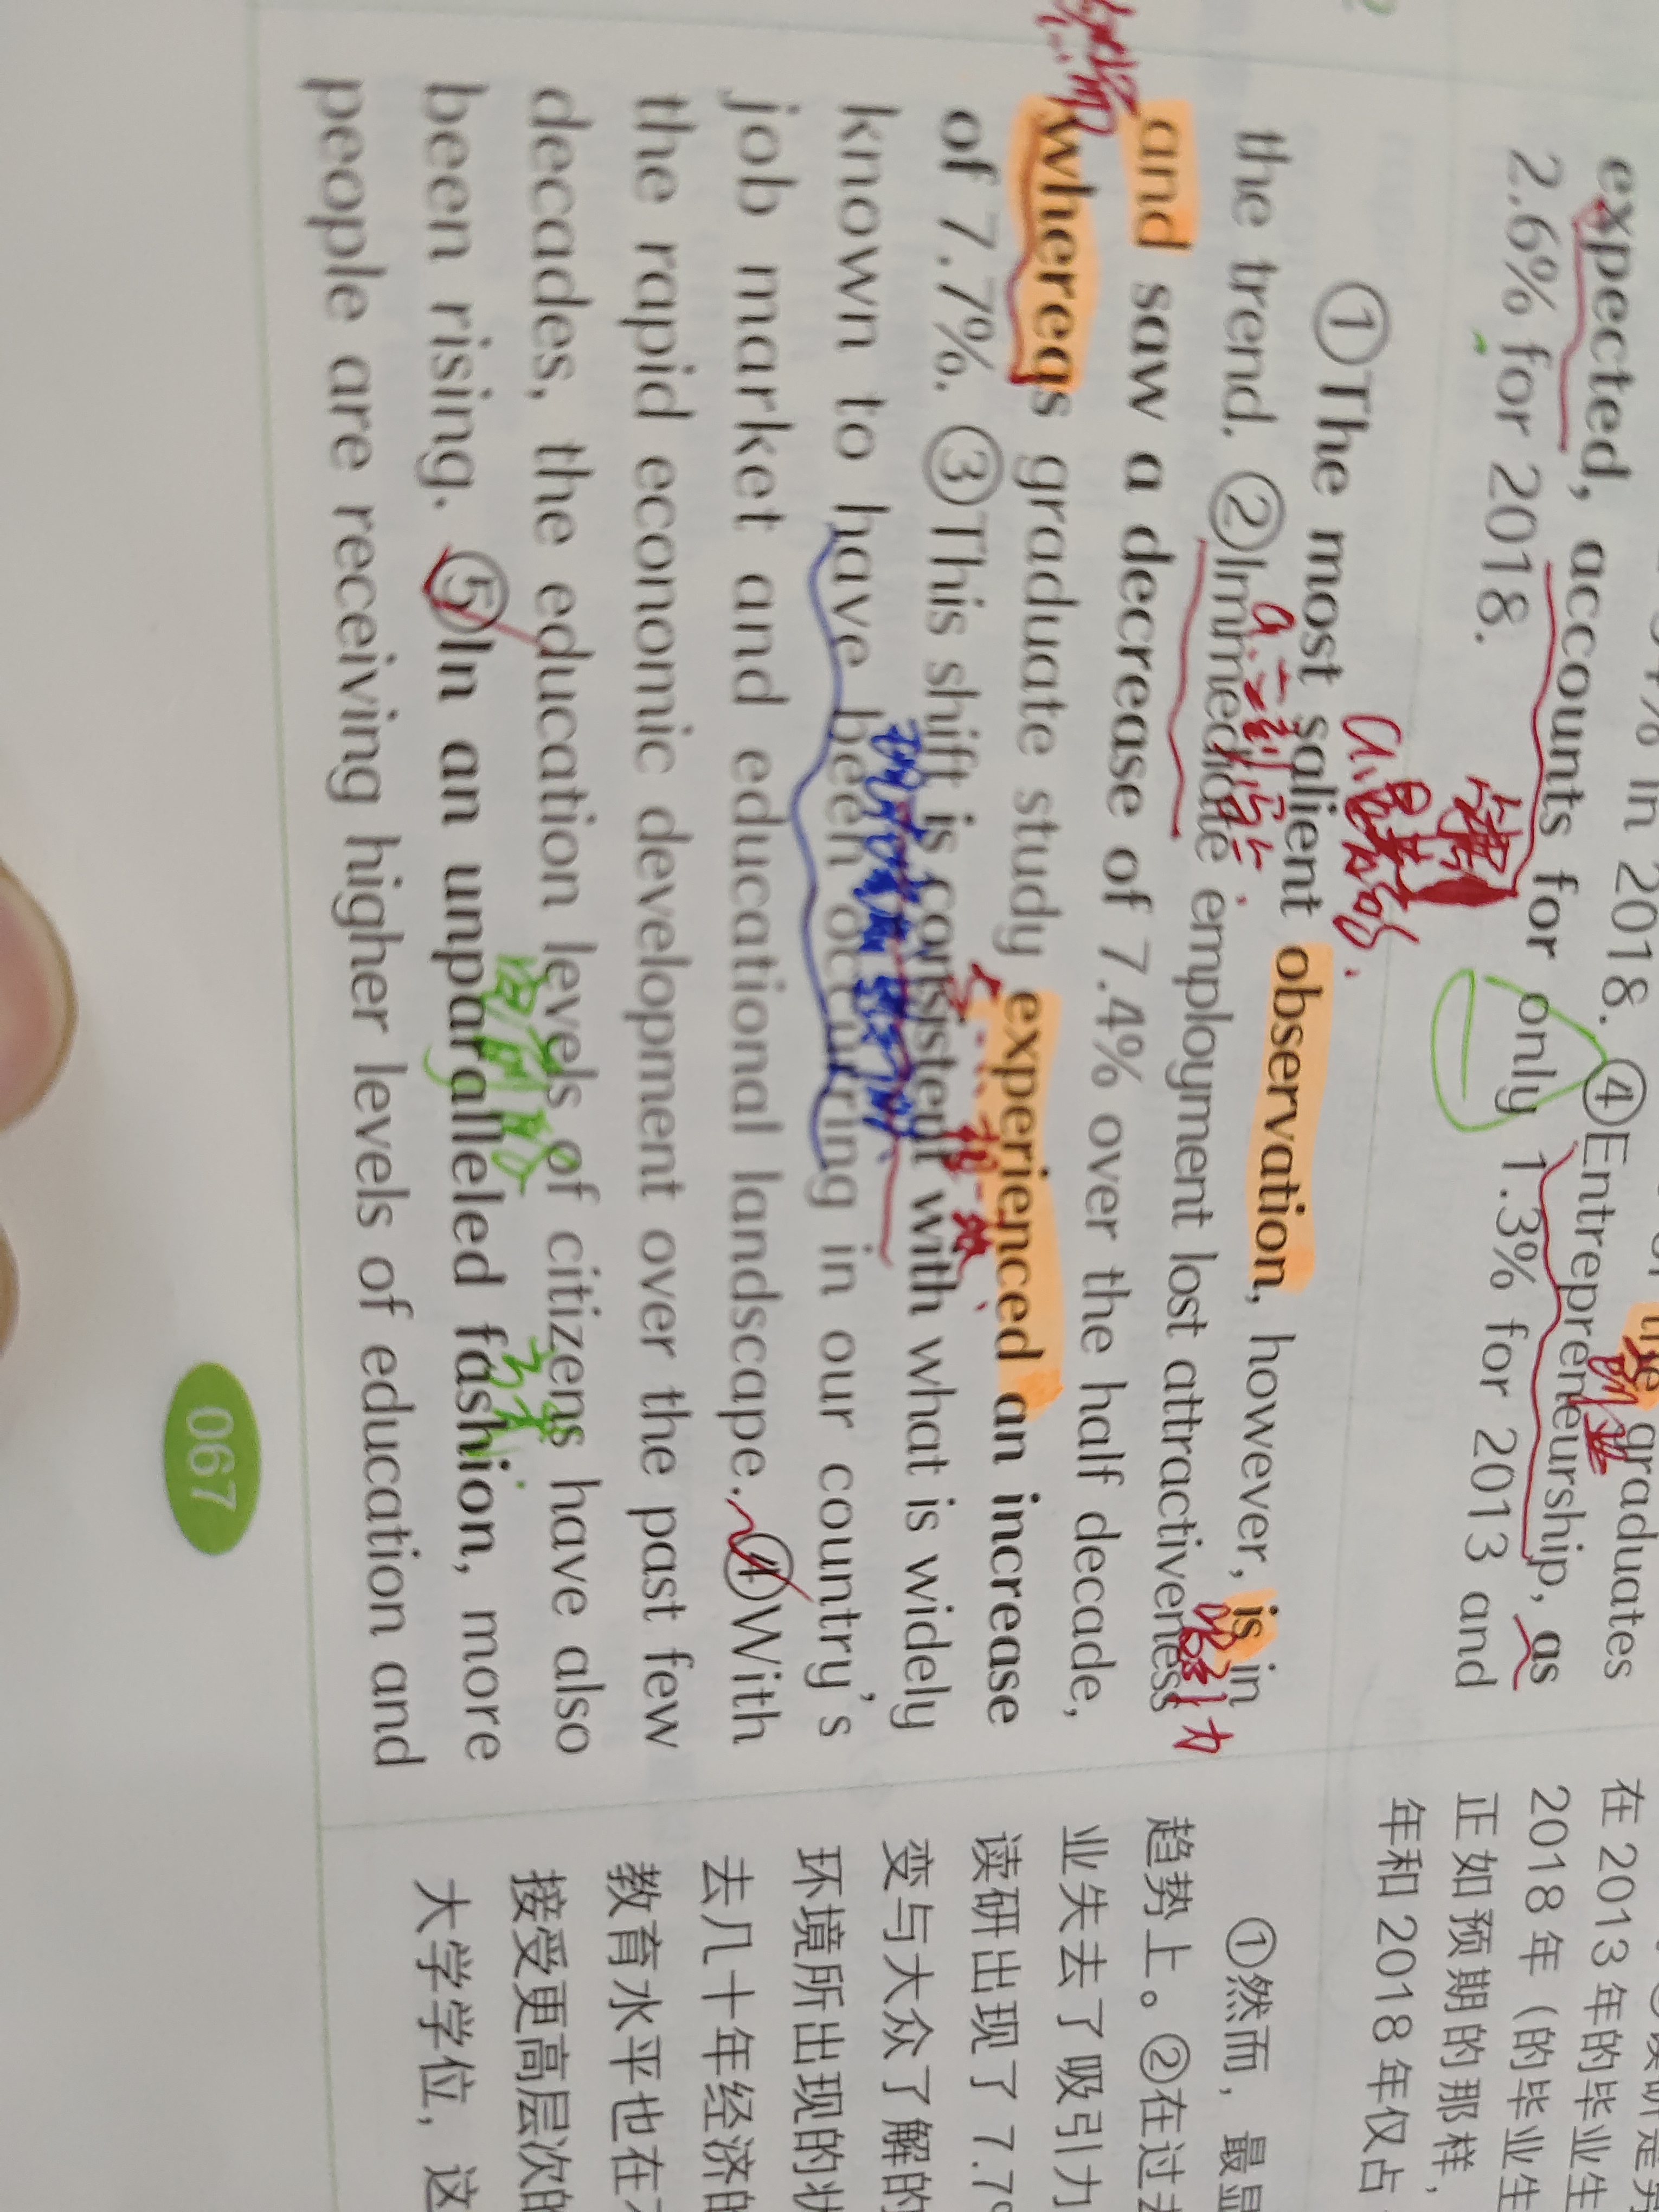 in 2018. ④Entrepreneurship, as
graduates
expected, accounts for only 1.3% for 2013 and
2.6% for 2018.
创业
占据
a.显著的
①The most salient observation, however, is in
the trend. ②Immediate employment lost attractiveness
a.立刻的
吸引力
and saw a decrease of 7.4% over the half decade,
whereas graduate study experienced an increase
of 7.7%. ③This shift is consistent with what is widely
与...相一致
known to have been occurring in our country's
job market and educational landscape. ④With
the rapid economic development over the past few
decades, the education levels of citizens have also
been rising. ⑤In an unparalleled fashion, more
空前的
方式
people are receiving higher levels of education and
067
在 2013 年的毕业生
2018 年（的毕业生
正如预期的那样，
年和 2018 年仅占
①然而，最显
趋势上。②在过去
业失去了吸引力
读研出现了 7.7%
变与大众了解的
环境所出现的状
去几十年经济的
教育水平也在不
接受更高层次的
大学学位，这